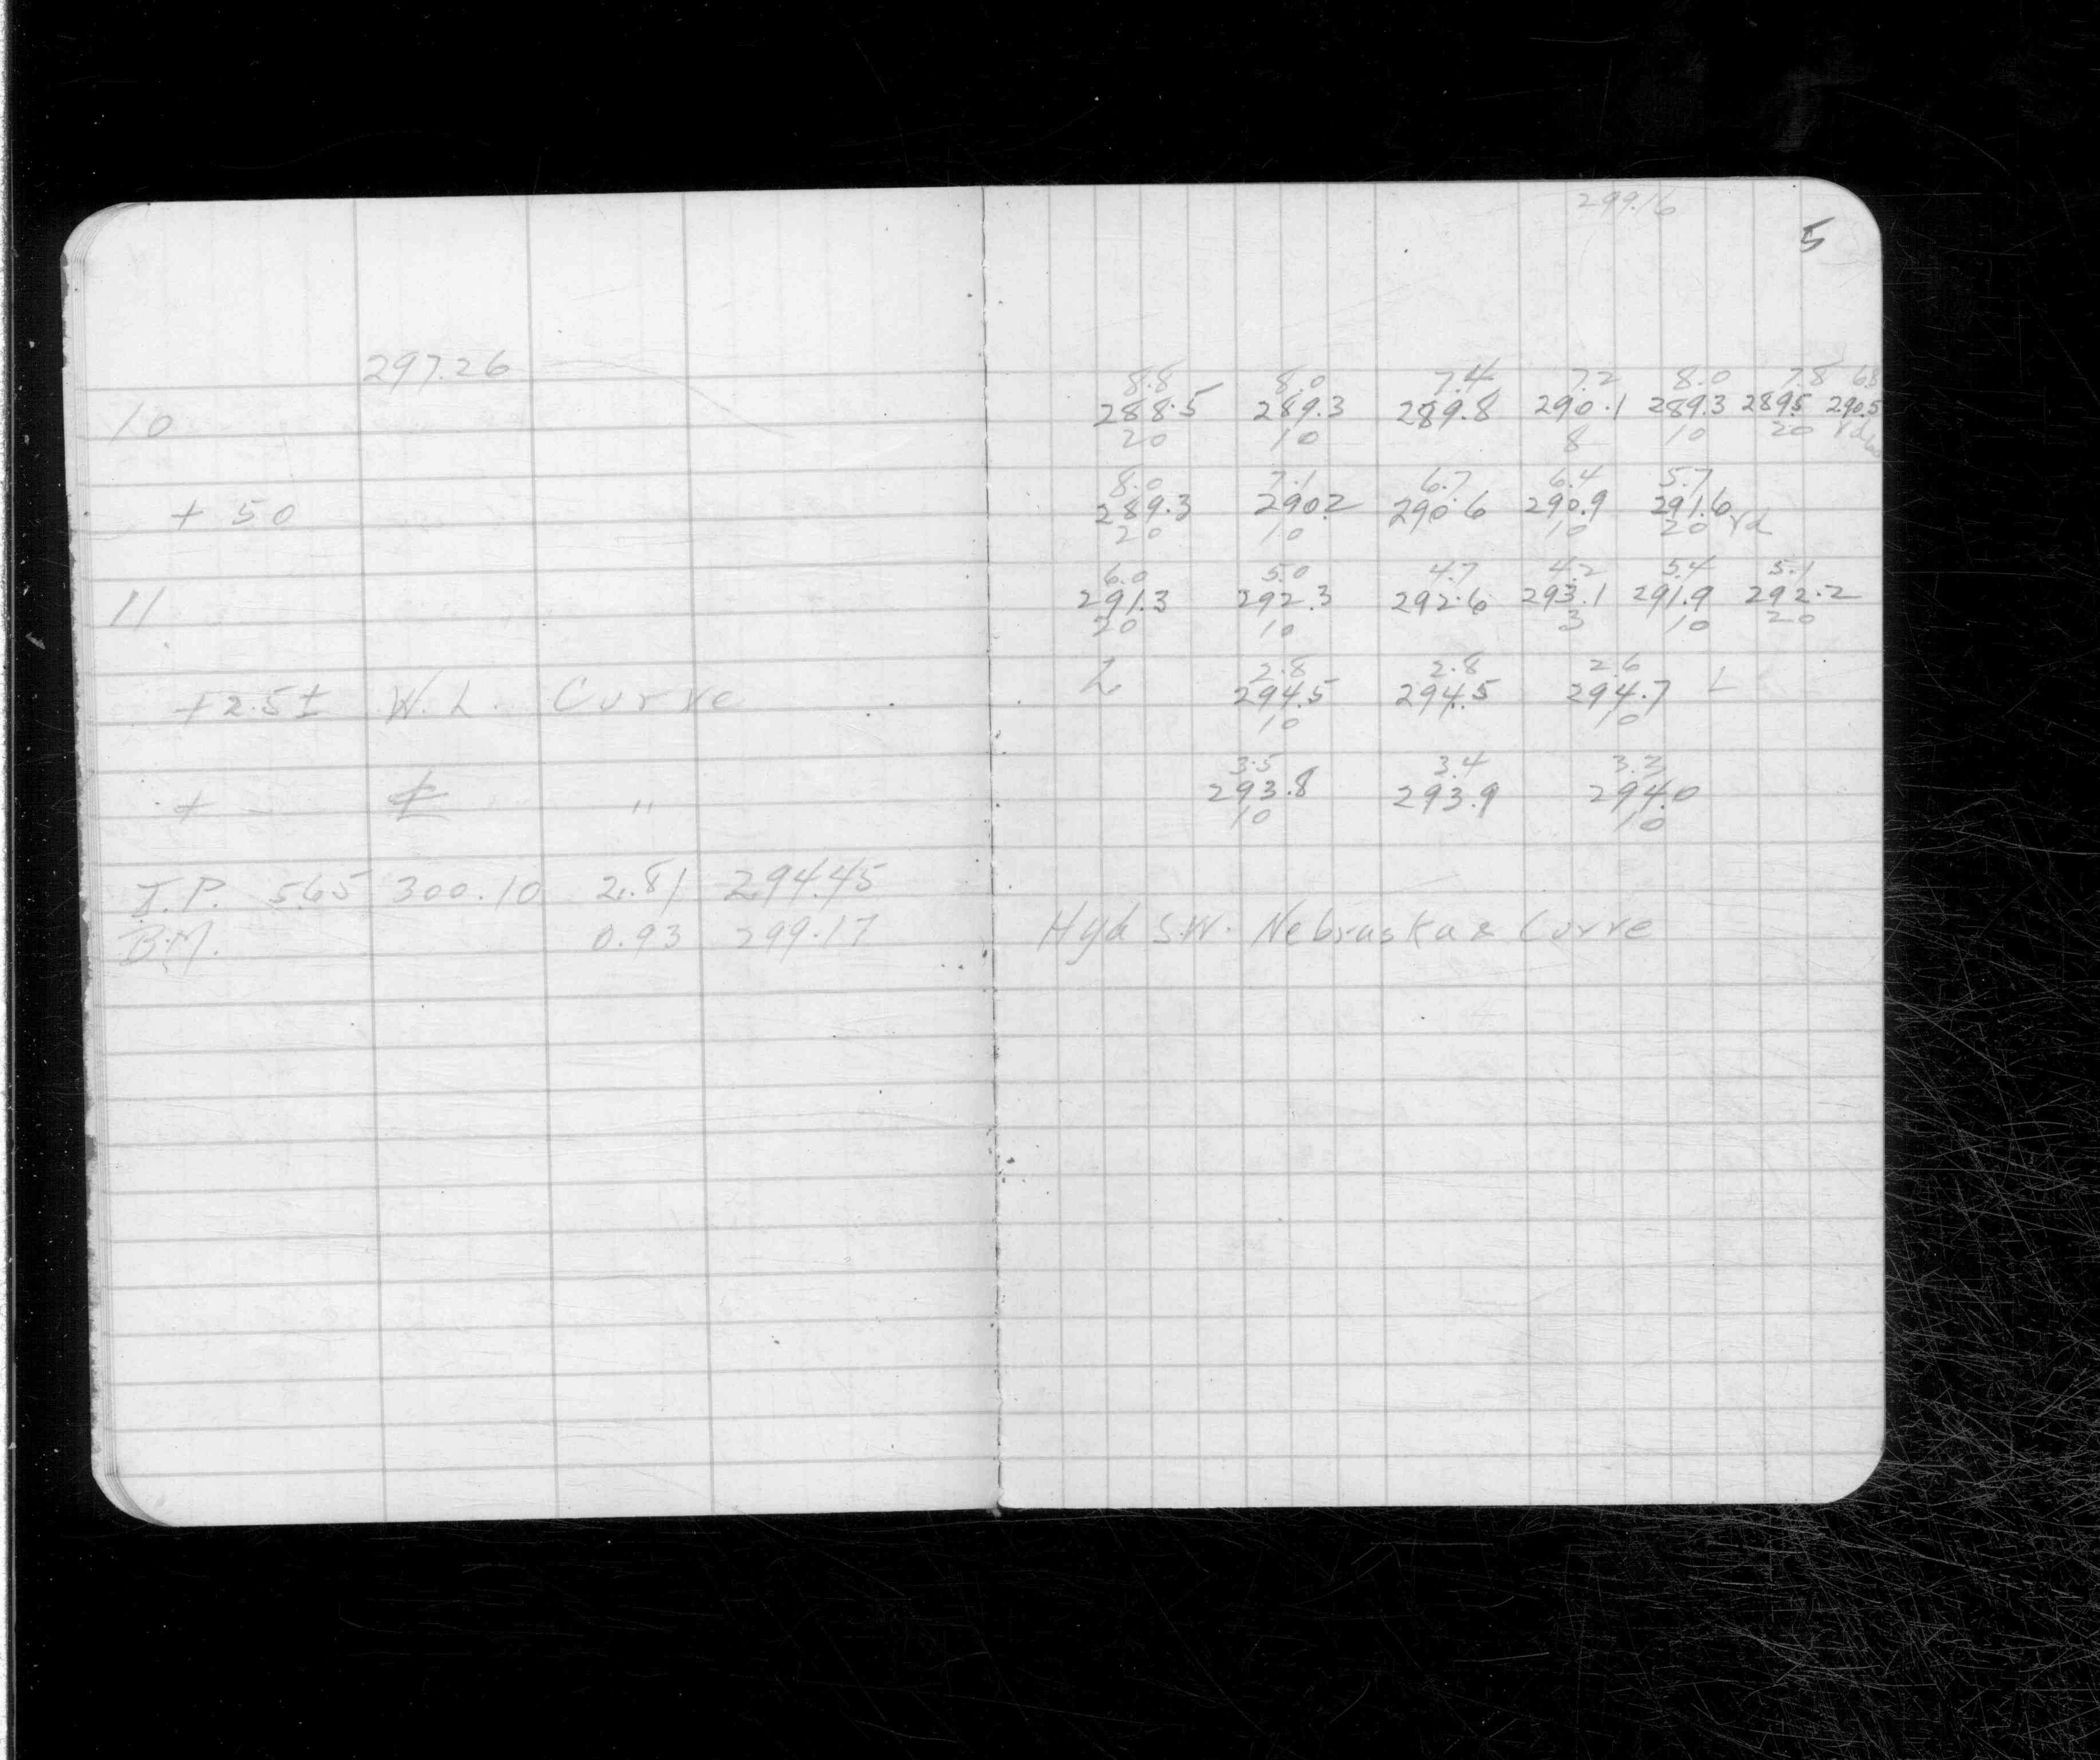 299.16
5
297.26
8.8 8.0 7.4 7.2 8.0 7.8 6.8
10 288.5 289.3 289.8 290.1 289.3 289.5 290.5
20 10 8 10 20 rd
8.0 7.1 6.7 6.4 5.7
+ 50 289.3 290.2 290.6 290.9 291.6 rd
20 10 10 20
6.0 5.0 4.7 4.2 5.4 5.1
11 291.3 292.3 292.6 293.1 291.9 292.2
20 10 3 10 20
L 2.8 2.8 2.6 L
+2.5± W.L. Curve 294.5 294.5 294.7
10 10
3.5 3.4 3.3
+ - ₵ " 293.8 293.9 294.0
10 10
T.P. 5.65 300.10 2.81 294.45
B.M. 0.93 299.17 Hyd S.W. Nebraska & Curve